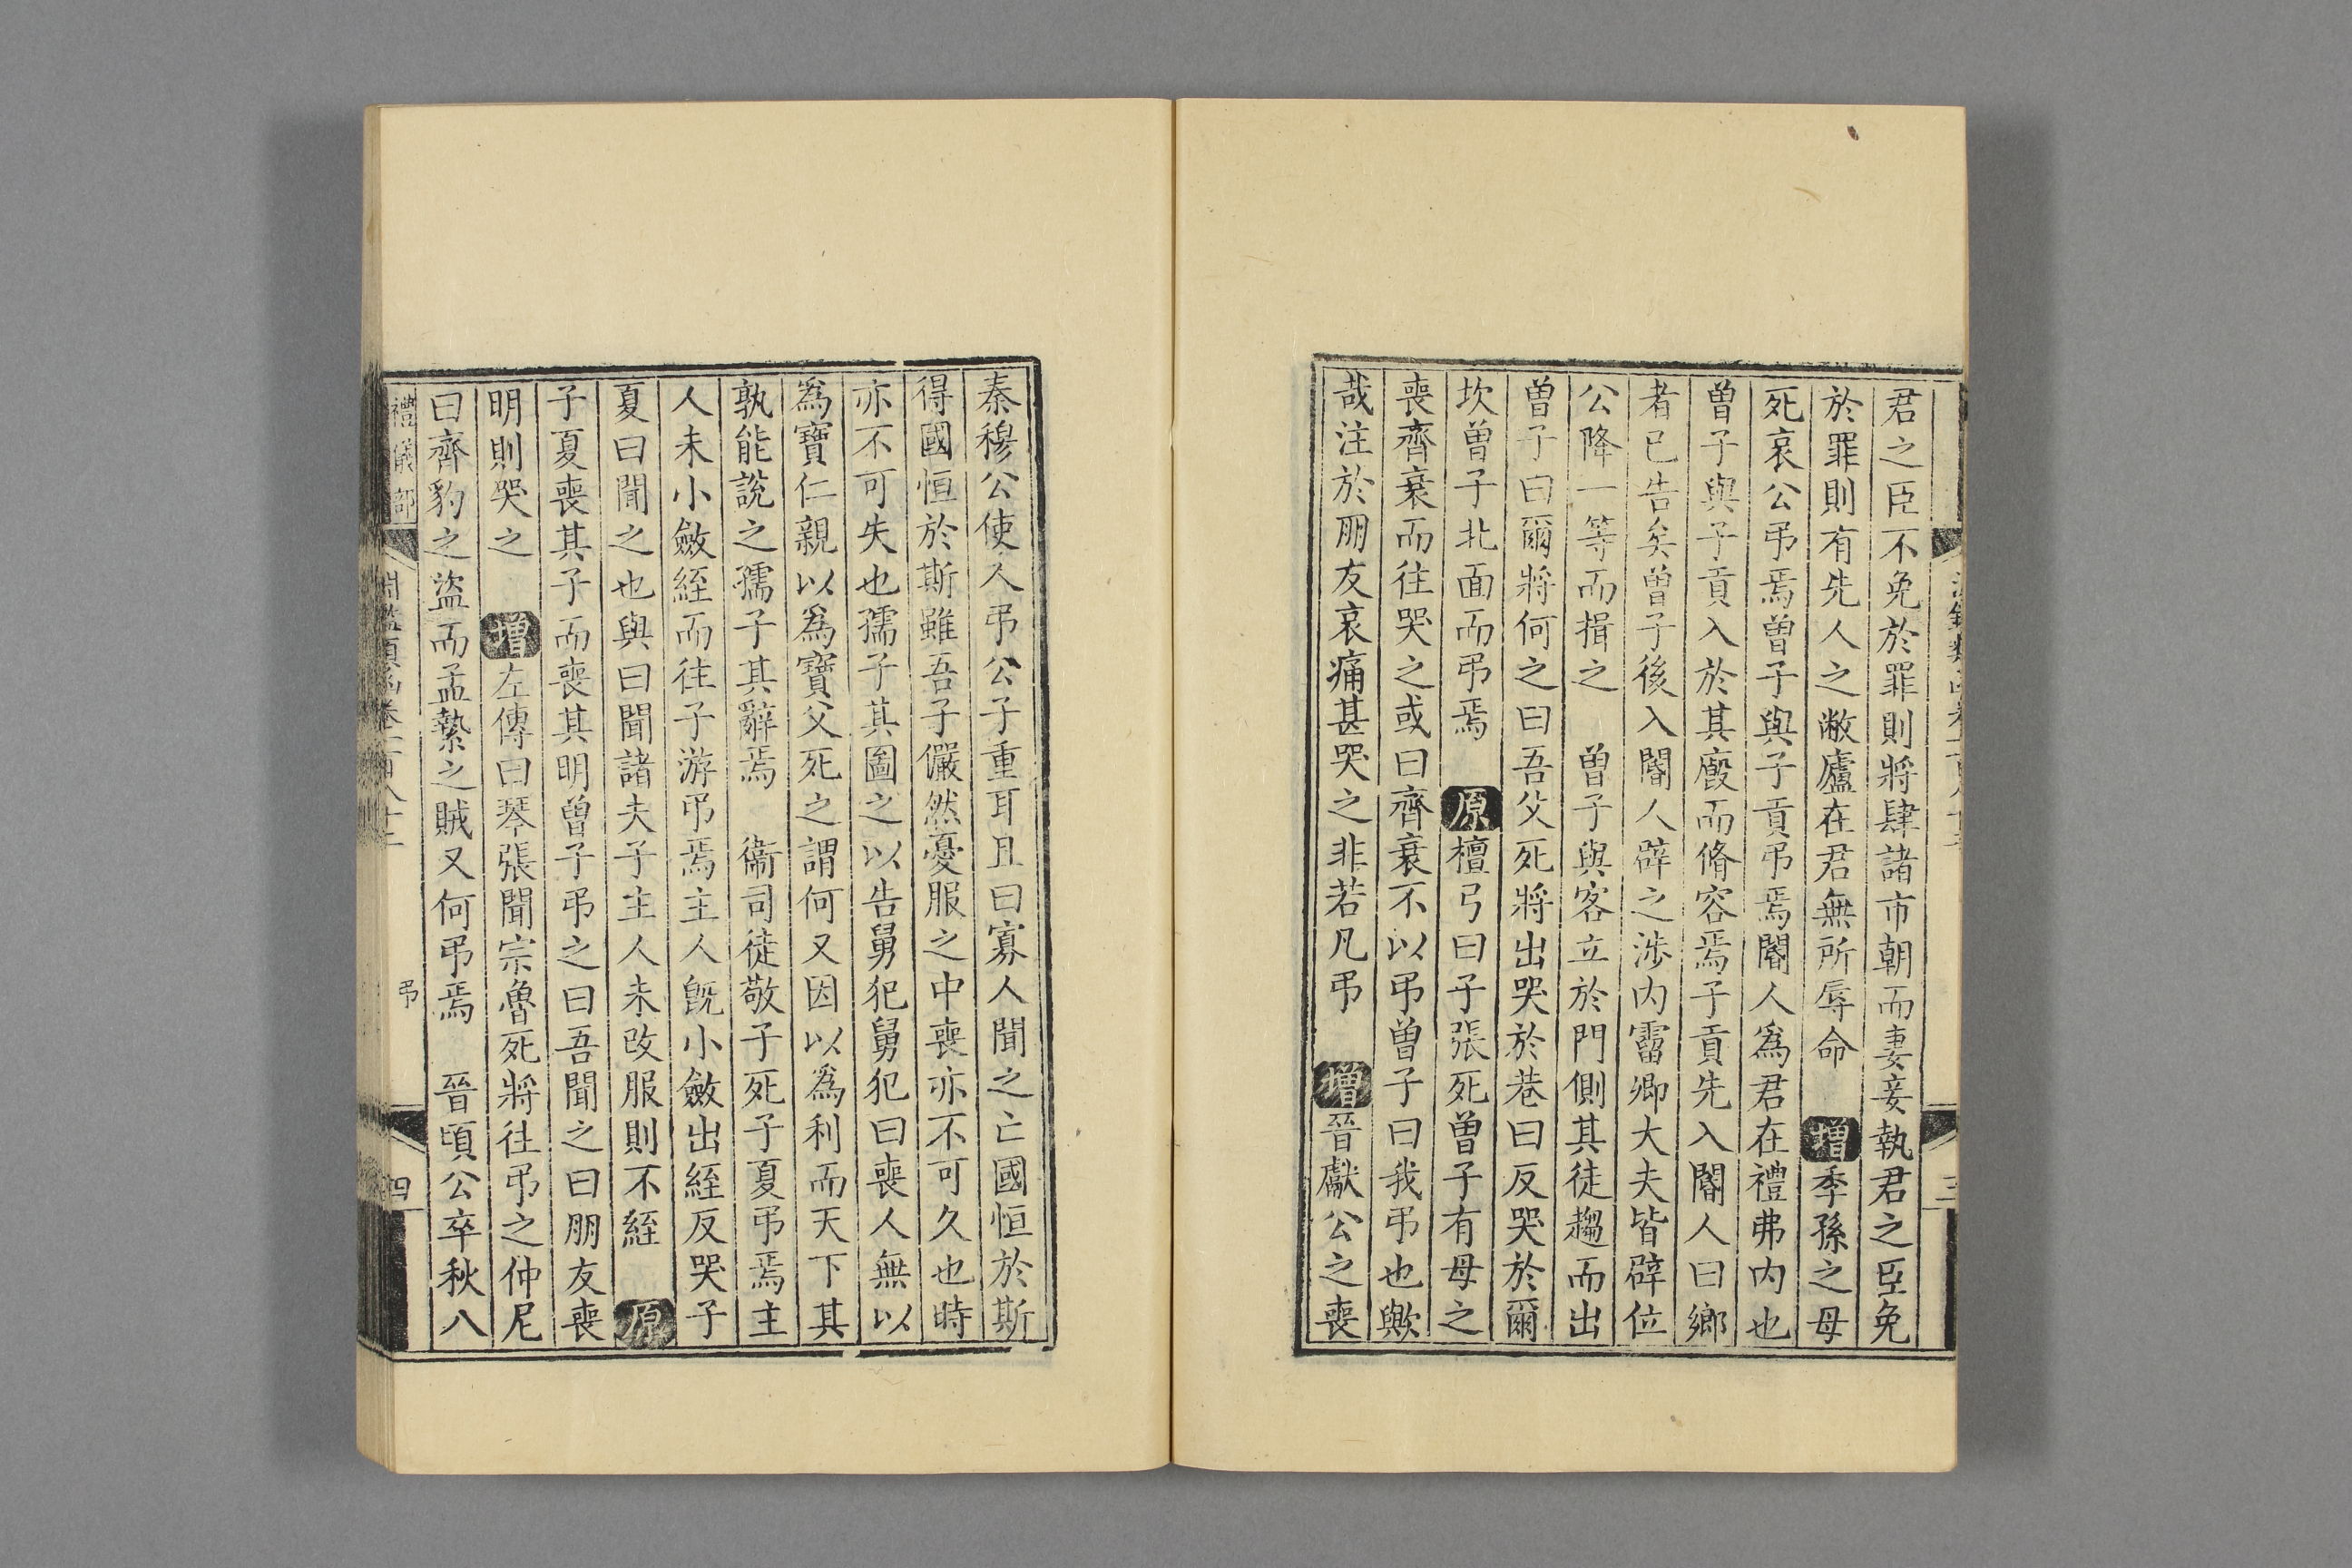 君之臣不免於罪則將肆諸市朝而妻妾執君之臣免
於罪則有先人之敝廬在君無所辱命 增季孫之母
死哀公弔焉曾子與子貢弔焉閽人為君在禮弗內也
曾子與子貢入於其廄而脩容焉子貢先入閽人曰鄉
者已告矣曾子後入閽人辟之涉內霤卿大夫皆辟位
公降一等而揖之 曾子與客立於門側其徒趨而出
曾子曰爾將何之曰吾父死將出哭於巷曰反哭於爾
坎曾子北面而弔焉 原檀弓曰子張死曾子有母之
喪齊衰而往哭之或曰齊衰不以弔曾子曰我弔也歟
哉注於朋友哀痛甚哭之非若凡弔 增晉獻公之喪
三
秦穆公使人弔公子重耳且曰寡人聞之亡國恒於斯
得國恒於斯雖吾子儼然憂服之中喪亦不可久也時
亦不可失也孺子其圖之以告舅犯舅犯曰喪人無以
為寶仁親以為寶父死之謂何又因以為利而天下其
孰能說之孺子其辭焉 衞司徒敬子死子夏弔焉主
人未小斂絰而往子游弔焉主人旣小斂出絰反哭子
夏曰聞之也與曰聞諸夫子主人未改服則不絰 原
子夏喪其子而喪其明曾子弔之曰吾聞之曰朋友喪
明則哭之 增左傳曰琴張聞宗魯死將往弔之仲尼
曰齊豹之盜而孟縶之賊又何弔焉 晉頃公卒秋八
禮儀部 淵鑑類函卷一百八十二 弔 四